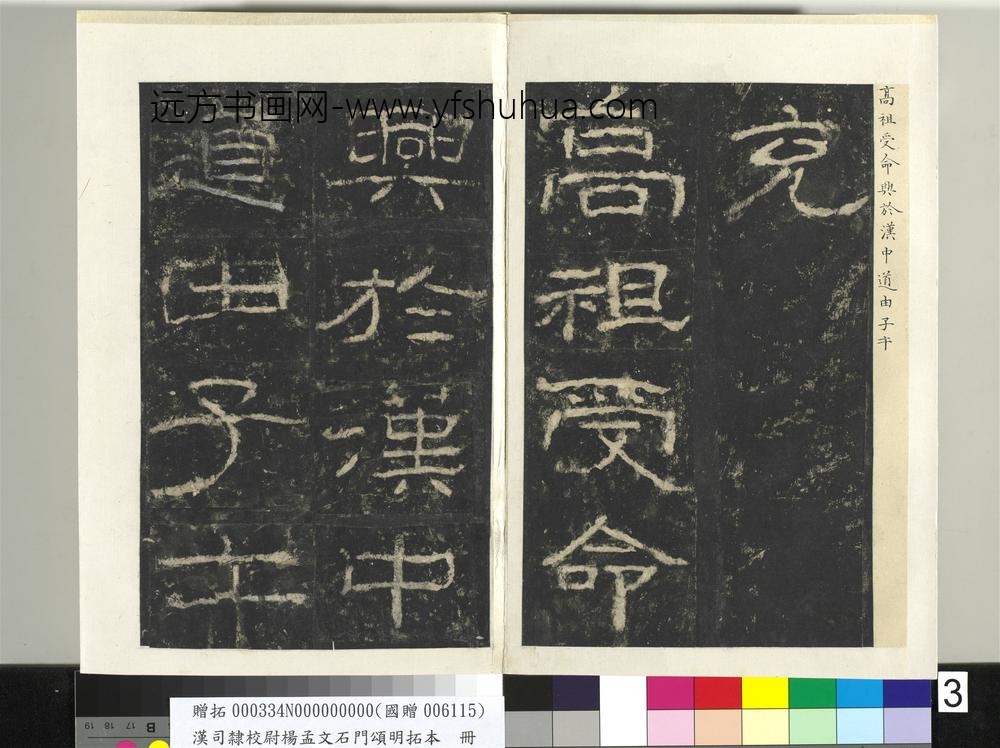 远方书画网-www.yfshuhua.com
高祖受命興於漢中道由子午
充
高祖受命
興於漢中
道由子午
3
B 17 18 19
贈拓 000334N000000000(國贈 006115)
漢司隸校尉楊孟文石門頌明拓本 冊